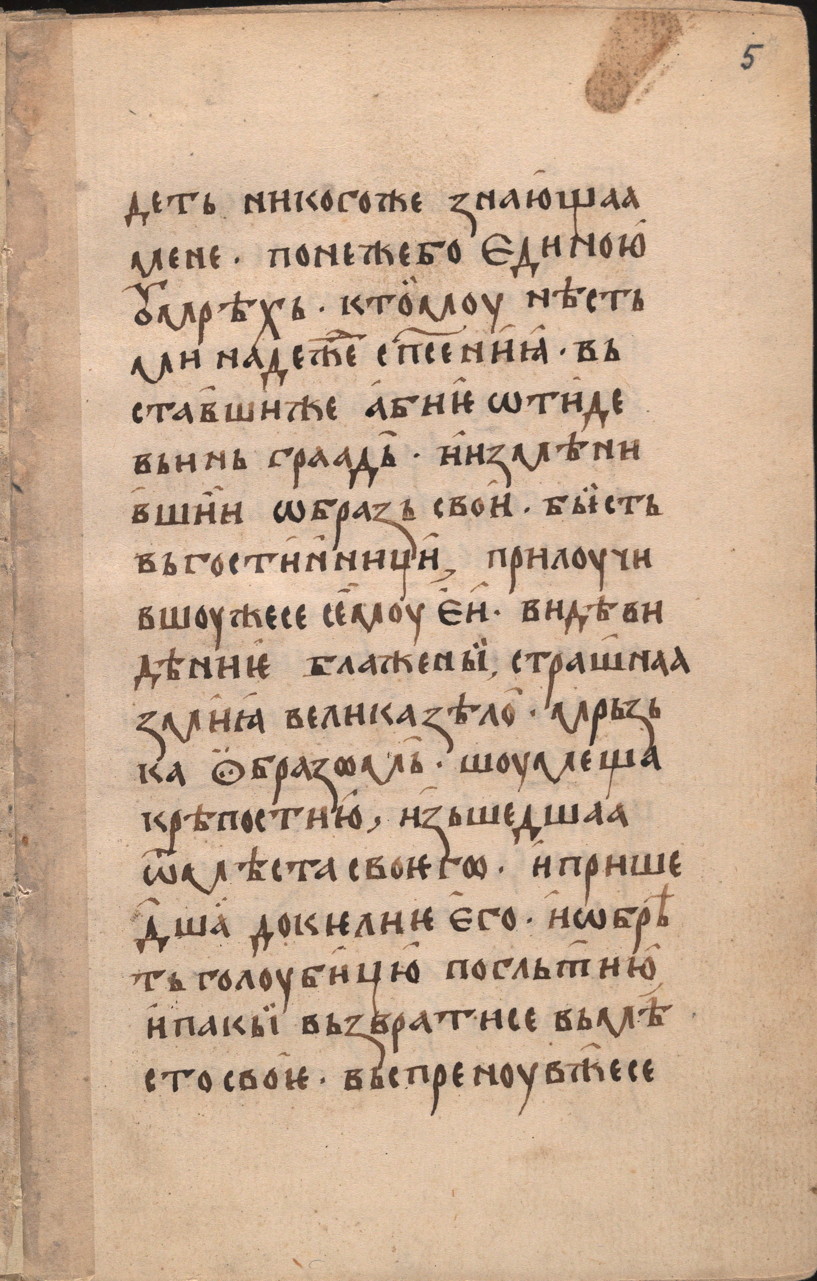 5
деть никогоже знаю́щаа
мене · понежебо Єдиною́
ꙋмрѣхь · кто́моу нѣсть
ми надеже сп҃сенїꙗ · вь
ста́вшиже а́биѥ ѡти́де
вьинь граадь · и́измѣни
вши́и ѡбразь свои · бы́сть
вьгости́нници, прилоучи
вшоужесе се́моу є́и · видѣви
дѣниѥ блажены́, стра́шнаа
змиꙗ велика ѕѣло · мрьзь
ка ѻ́бразѡмь · шоумеща
крѣпостию́, и́зьшедшаа
ѿмѣста своѥгѡ · и́прише
дша́ докѥлиѥ є́го · и́ѡбрѣ
ть голоуби́цю погльти́ю
и́пакы́ вьзвратисе вьмѣ
сто своѥ · вьспреноувже́се